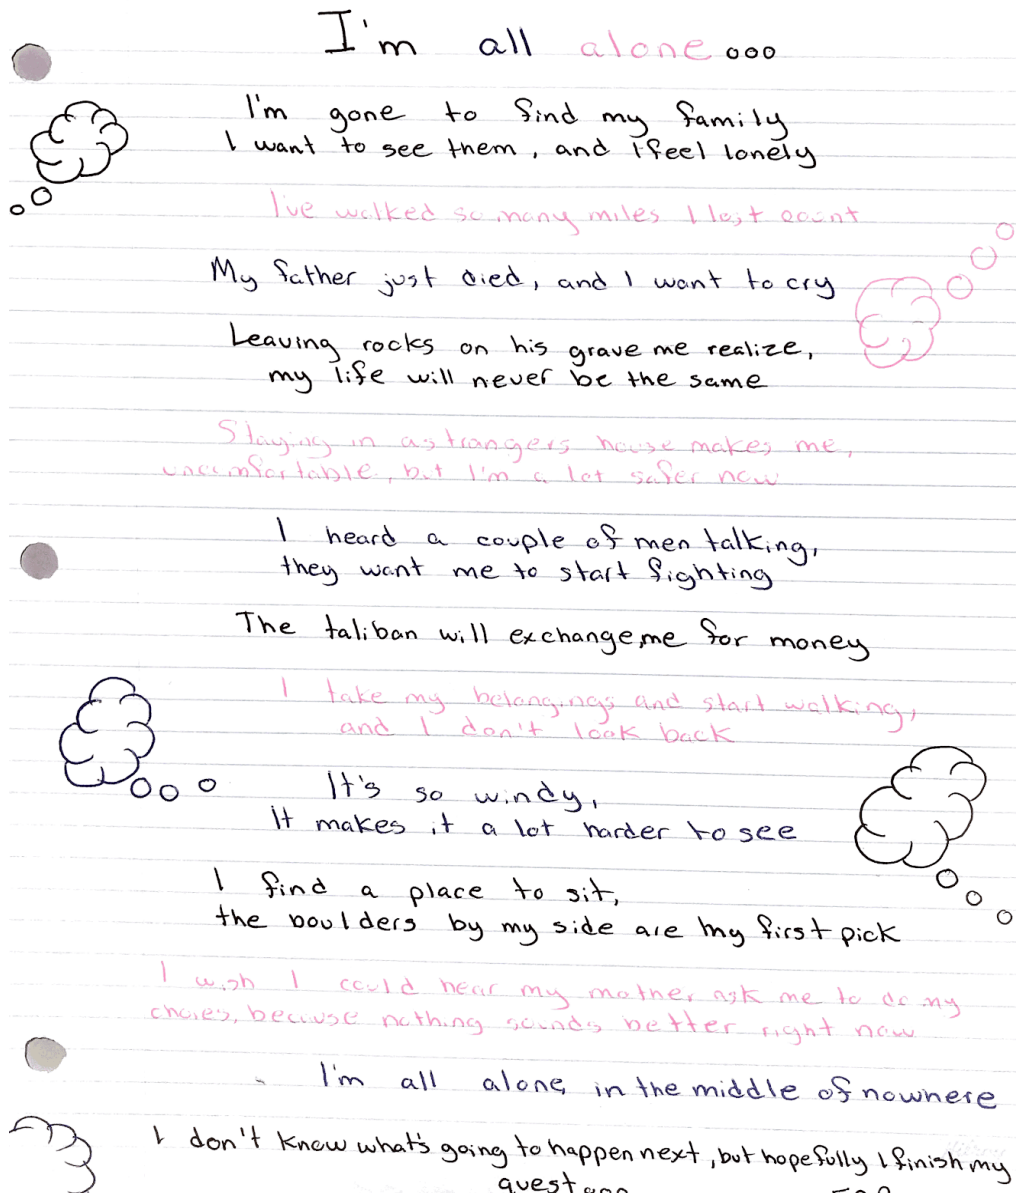 I'm all alone...
I'm gone to find my family
I want to see them, and I feel lonely
I've walked so many miles I lost count
My father just died, and I want to cry
Leaving rocks on his grave me realize,
my life will never be the same
Staying in a strangers house makes me,
uncomfortable, but I'm a lot safer now
I heard a couple of men talking,
they want me to start fighting
The taliban will exchange me for money
I take my belongings and start walking,
and I don't look back
It's so windy,
it makes it a lot harder to see
I find a place to sit,
the boulders by my side are my first pick
I wish I could hear my mother ask me to do my
chores, because nothing sounds better right now
I'm all alone in the middle of nowhere
I don't know what's going to happen next, but hopefully I finish my
quest...